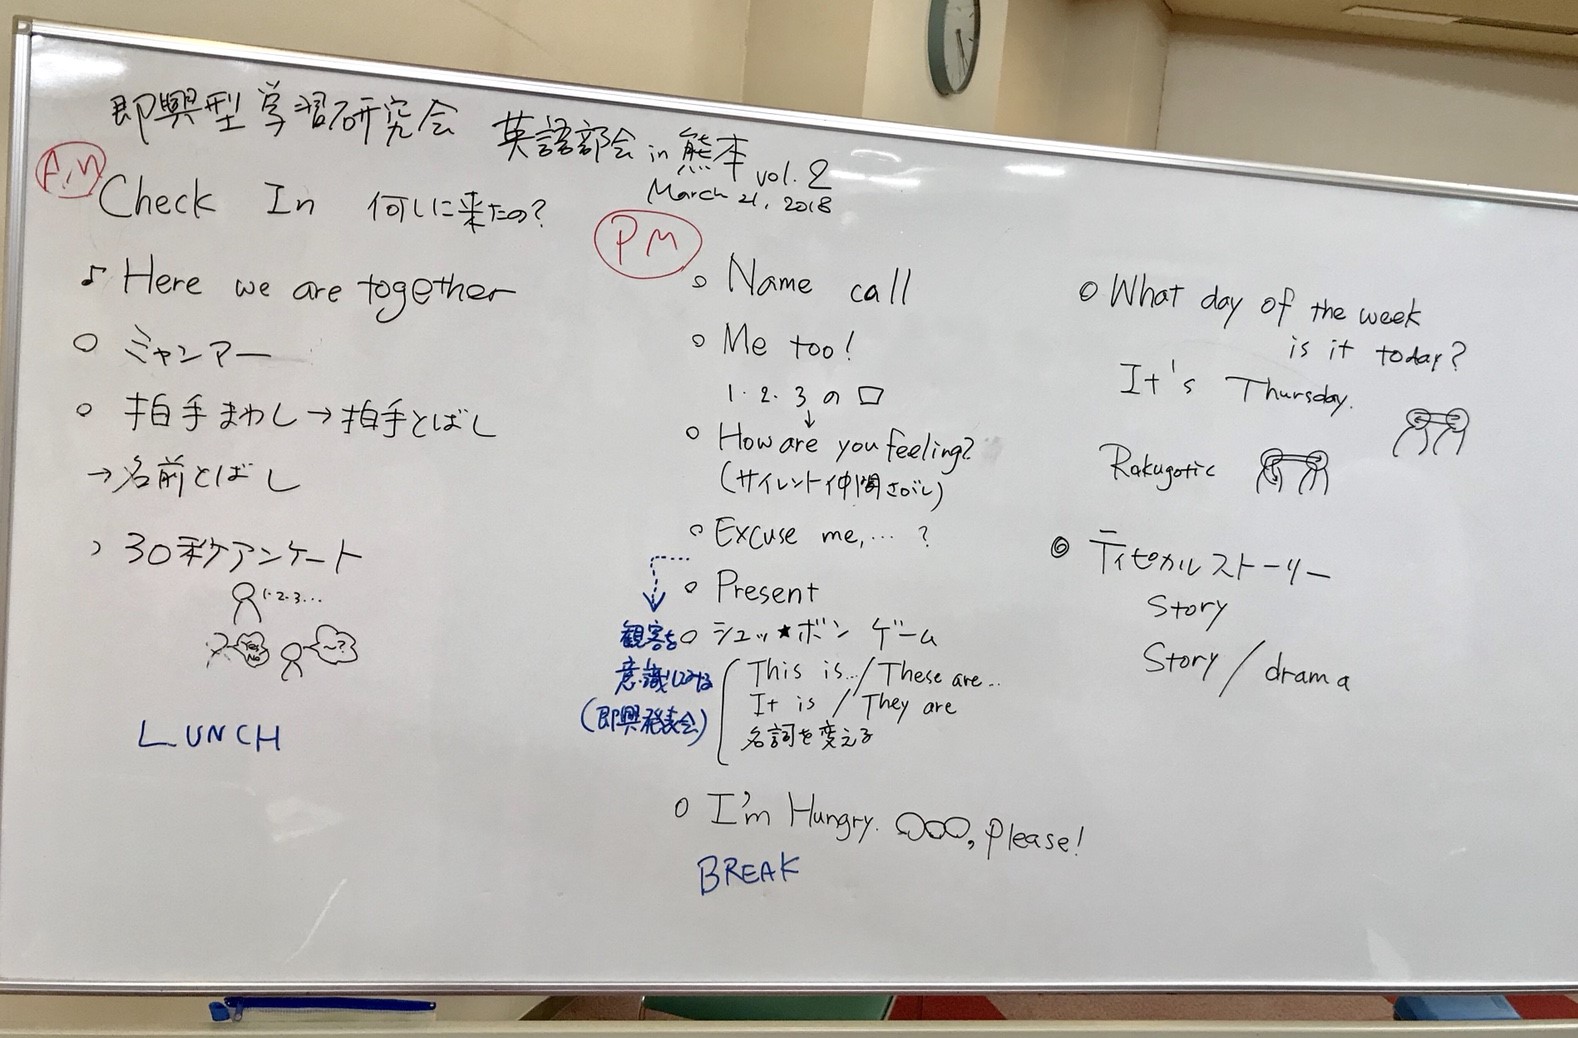 即興型学習研究会 英語部会 in 熊本 vol.2
March 21, 2018
A.M
Check In 何しに来たの?
♪ Here we are together
○ ミャンマー
○ 拍手まわし→拍手とばし
→名前とばし
30秒アンケート
1.2.3...
Yes No
~?
LUNCH
PM
○ Name call
○ Me too!
1.2.3の□
↓
○ How are you feeling?
(サイレント仲間さがし)
○ Excuse me,… ?
○ Present
○ シュッ★ボン ゲーム
This is../These are..
It is / They are
名詞を変える
観客を
意識してみる
(即興発表会)
○ I'm Hungry. ○○○, please!
BREAK
○ What day of the week
is it today?
It's Thursday.
Rakugotic
◎ ティピカルストーリー
Story
Story / drama